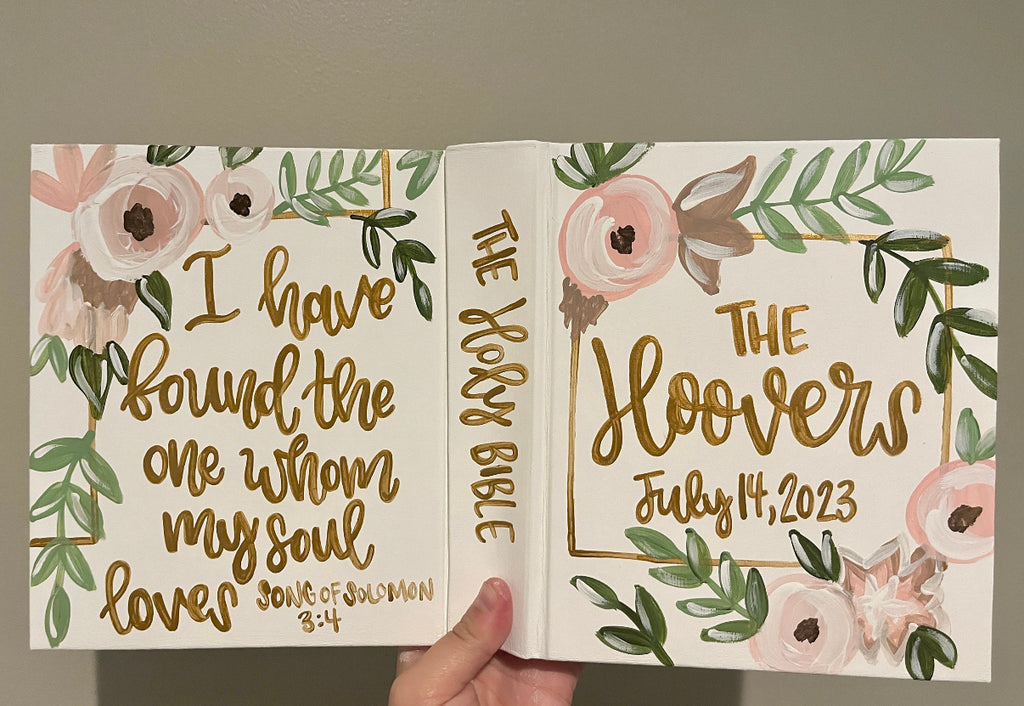 I have
found the
one whom
my soul
loves
SONG OF SOLOMON
3:4
THE Holy BIBLE
THE
Hoovers
July 14, 2023